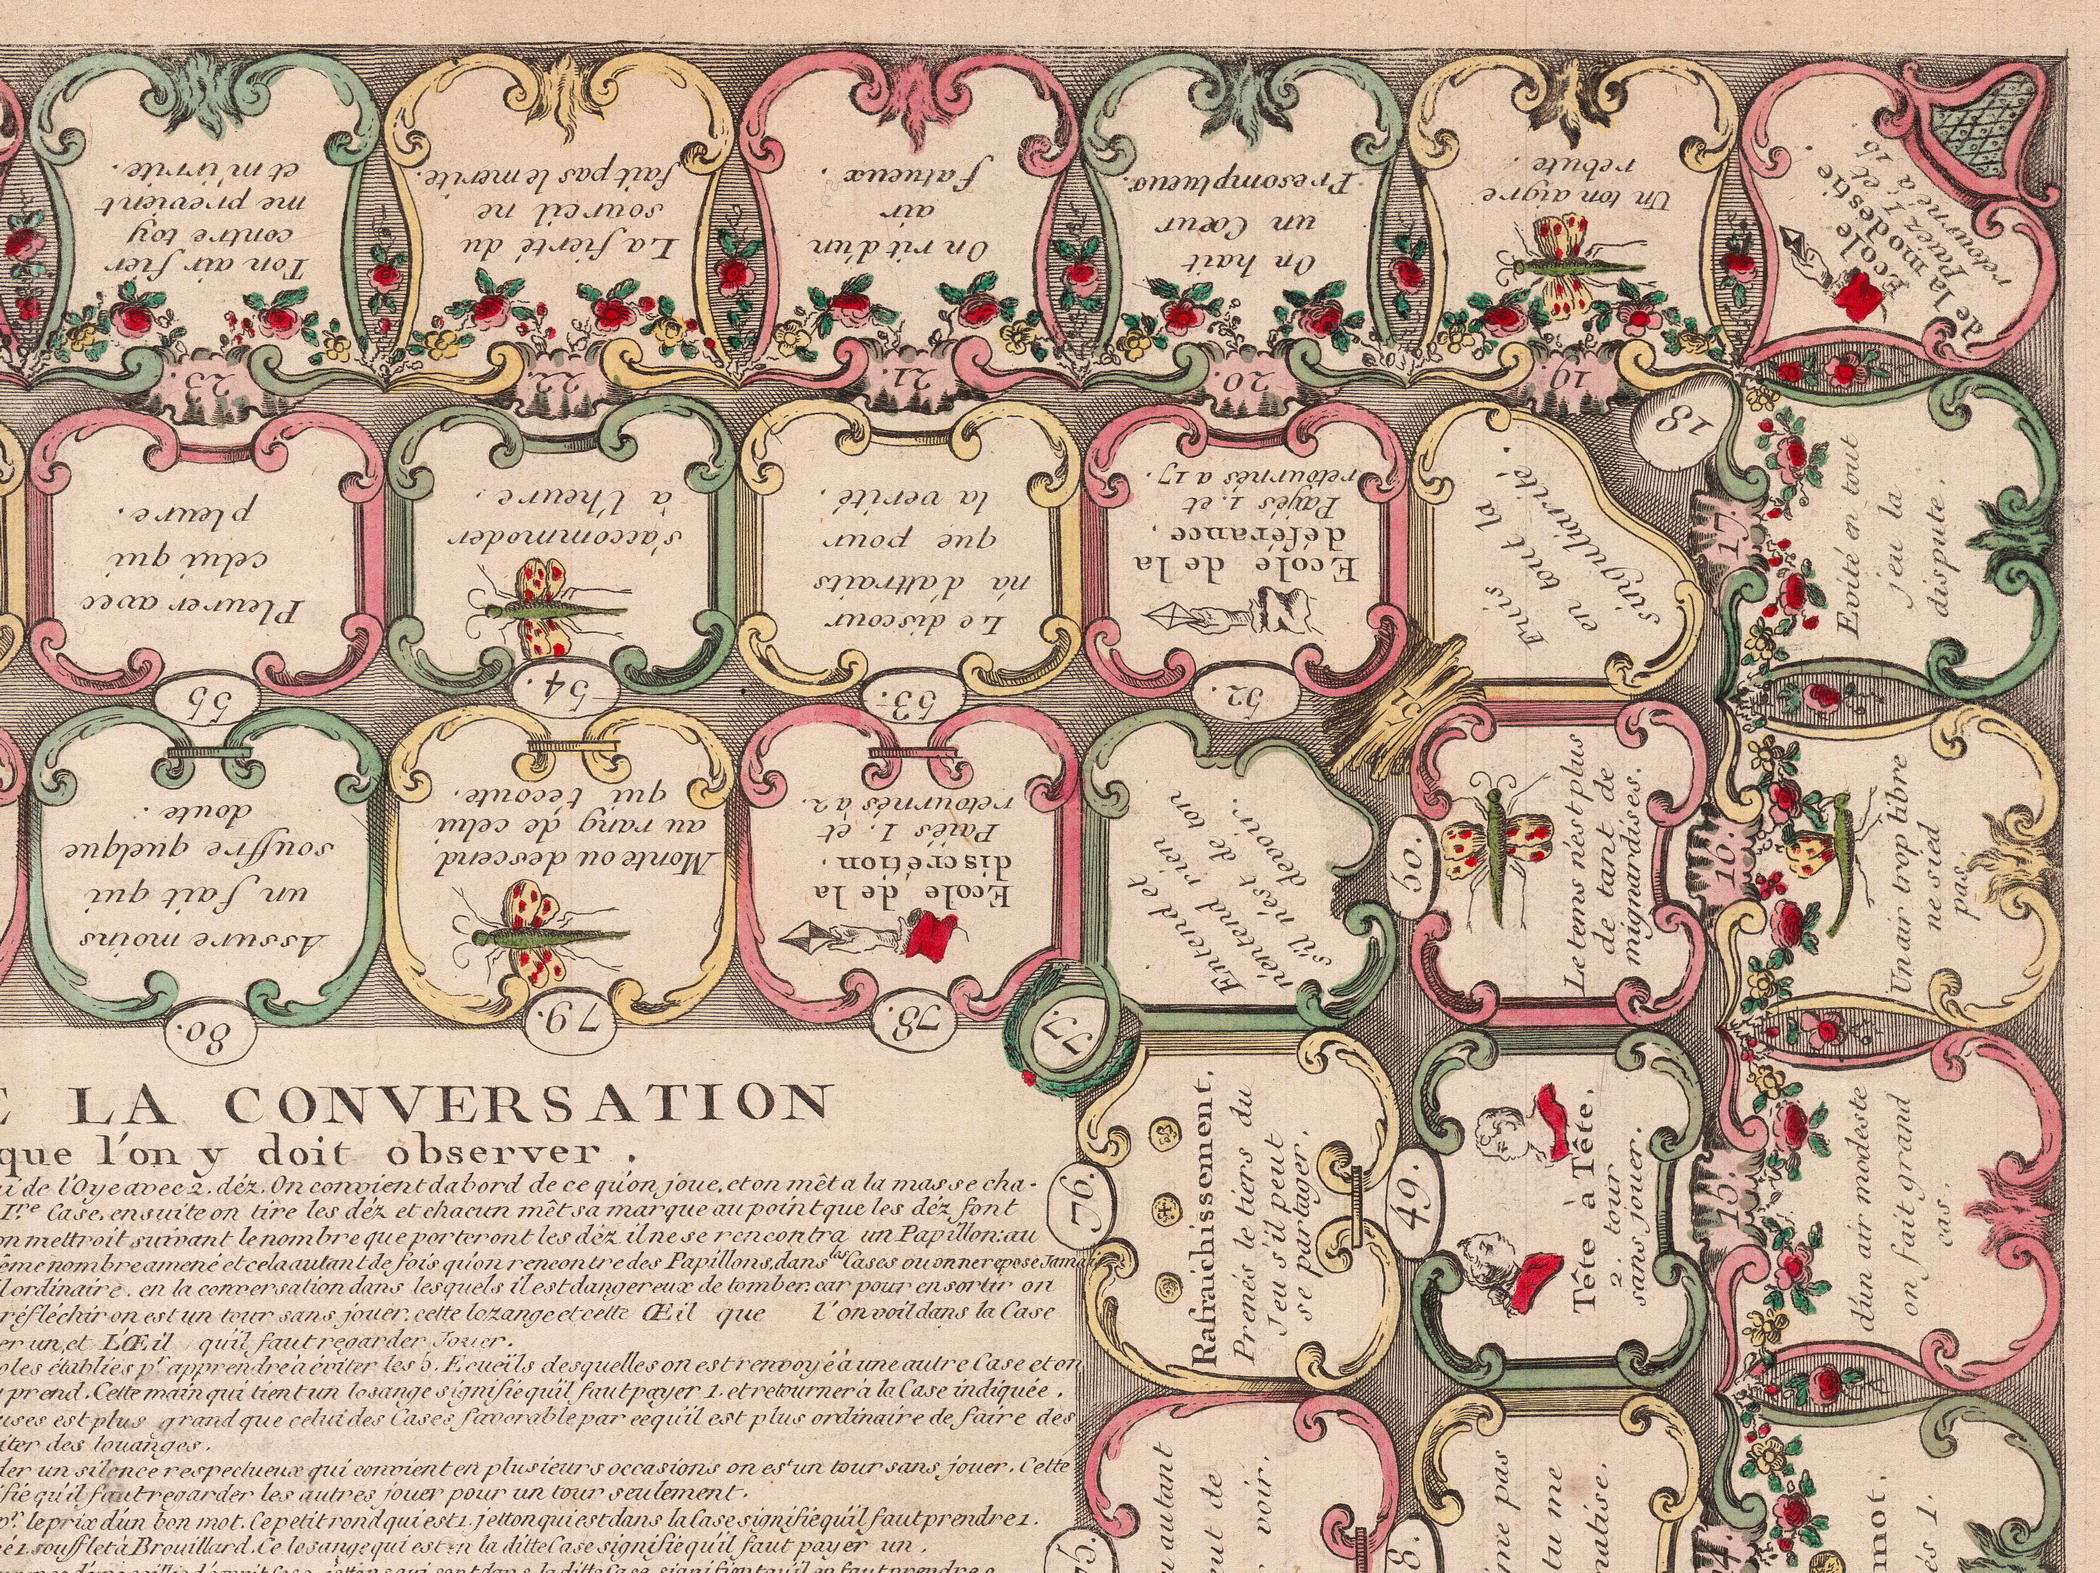 Evité en tout
jeu la
dispute.
17.
Un air trop libre
ne sied
pas.
16.
d'un air modeste
on fait grand
cas.
15.
mot.
és 1.
14.
18
Ecole
de la modestie
Paiez 1 et
retourné à 16
19.
Un ton aigre
rebute.
20.
On hait
un Cœur
Presomptueux.
21.
On rit d'un
air
fatueux.
22.
La fierté du
sourcil ne
fait pas le merite.
23.
Ton air fier
contre toy
me previent
et m'irrite.
8.
49.
Tête à Tête.
2. tour
sans jouer.
50.
Le tems n'est plus
de tant de
mignardises.
51.
Fuis
en tout la
singularité.
52.
Ecole de la
déférance.
Payés 1. et
retournés a 17.
53.
Le discour
n'a d'attraits
que pour
la verité.
54.
s'accommoder
à l'heure.
55
Pleurer avec
celui qui
pleure.
75.
u autant
voir.
76.
Rafraichissement.
Prenés le tiers du
Jeu s'il peut
se partager.
77.
Entend et
n'entend rien
s'il n'est de ton
devoir.
78.
Ecole de la
discrétion.
Paiés 1. et
retournés à 2.
79.
Monte ou descend
au rang de celui
qui t'ecoute.
80.
Assure moins
un fait qui
souffre quelque
doute.
E LA CONVERSATION
que l'on y doit observer.
de l'Oye avec 2. déz. On convient dabord de ce qu'on joue, et on mêt a la masse cha-
I.re Case, ensuite on tire les déz et chacun mêt sa marque au point que les déz font
on mettroit suivant le nombre que porteront les déz il ne se rencontra un Papillon: au
ême nombre amené et cela autant de fois qu'on rencontre des Papillons, dans les Cases ou on ne repose Jamais
l ordinaire. en la conversation dans lesquels il est dangereux de tomber. car pour en sortir on
réfléchir on est un tour sans jouer. cette lozange et cette Œil que l'on voil dans la Case
er un, et L'Œil qu'il faut regarder Jouer.
oles établies p.r apprendre à éviter les 5. Ecueils desquelles on est renvoyé à une autre Case et on
prend. Cette main qui tient un losange signifie qu'il faut payer 1. et retourner à la Case indiquée.
uses est plus grand que celui des Cases favorable par ce qu'il est plus ordinaire de faire des
iter des louanges.
der un silence respectueux qui convient en plusieurs occasions on est un tour sans jouer. Cette
ifie qu'il faut regarder les autres jouer pour un tour seulement.
p.r le prix d'un bon mot. Ce petit rond qui est 1. jetton qui est dans la Case signifie qu'il faut prendre 1.
é 1. soufflet à Brouillard. Ce losange qui est en la ditte Case signifie qu'il faut payer un.